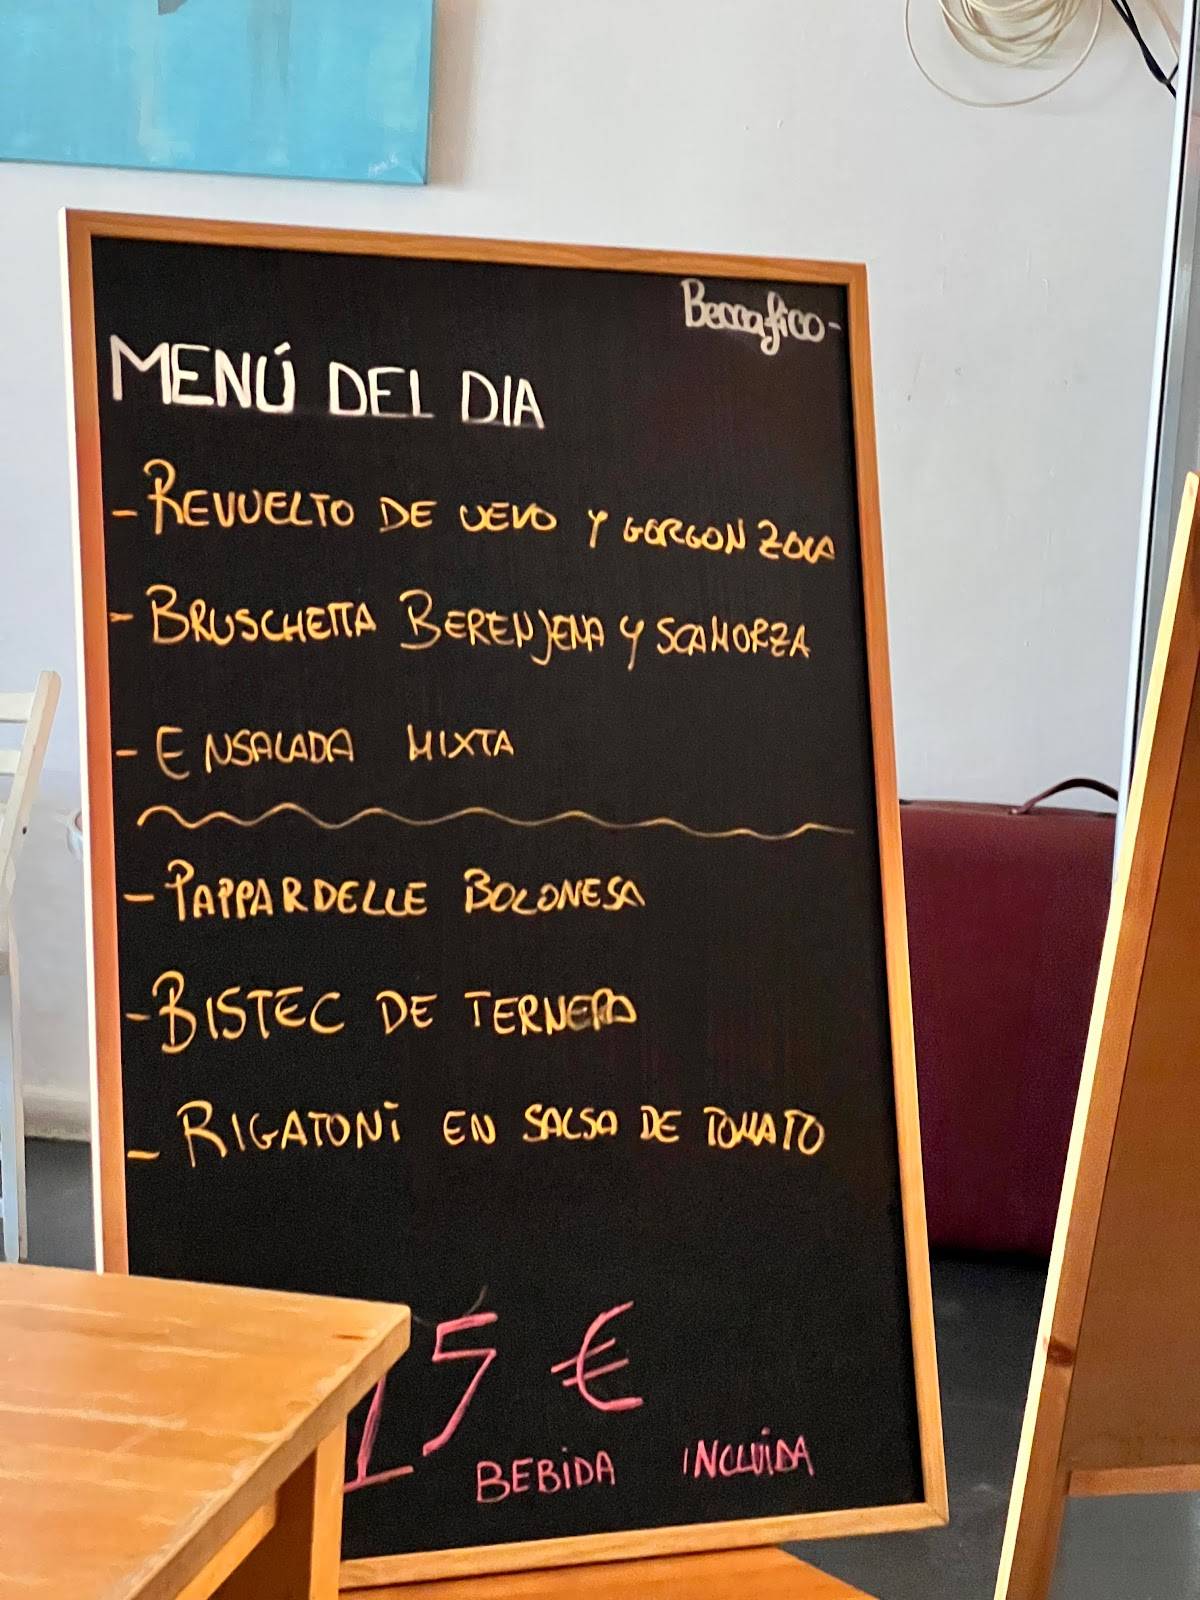 Beccafico-
MENÚ DEL DIA
- REVUELTO DE UEVO Y GORGONZOLA
- BRUSCHETTA BERENJENA Y SCAMORZA
- ENSALADA MIXTA
- PAPPARDELLE BOLONESA
- BISTEC DE TERNERA
- RIGATONi EN SALSA DE TOMATO
15 €
BEBiDA INCLUIDA